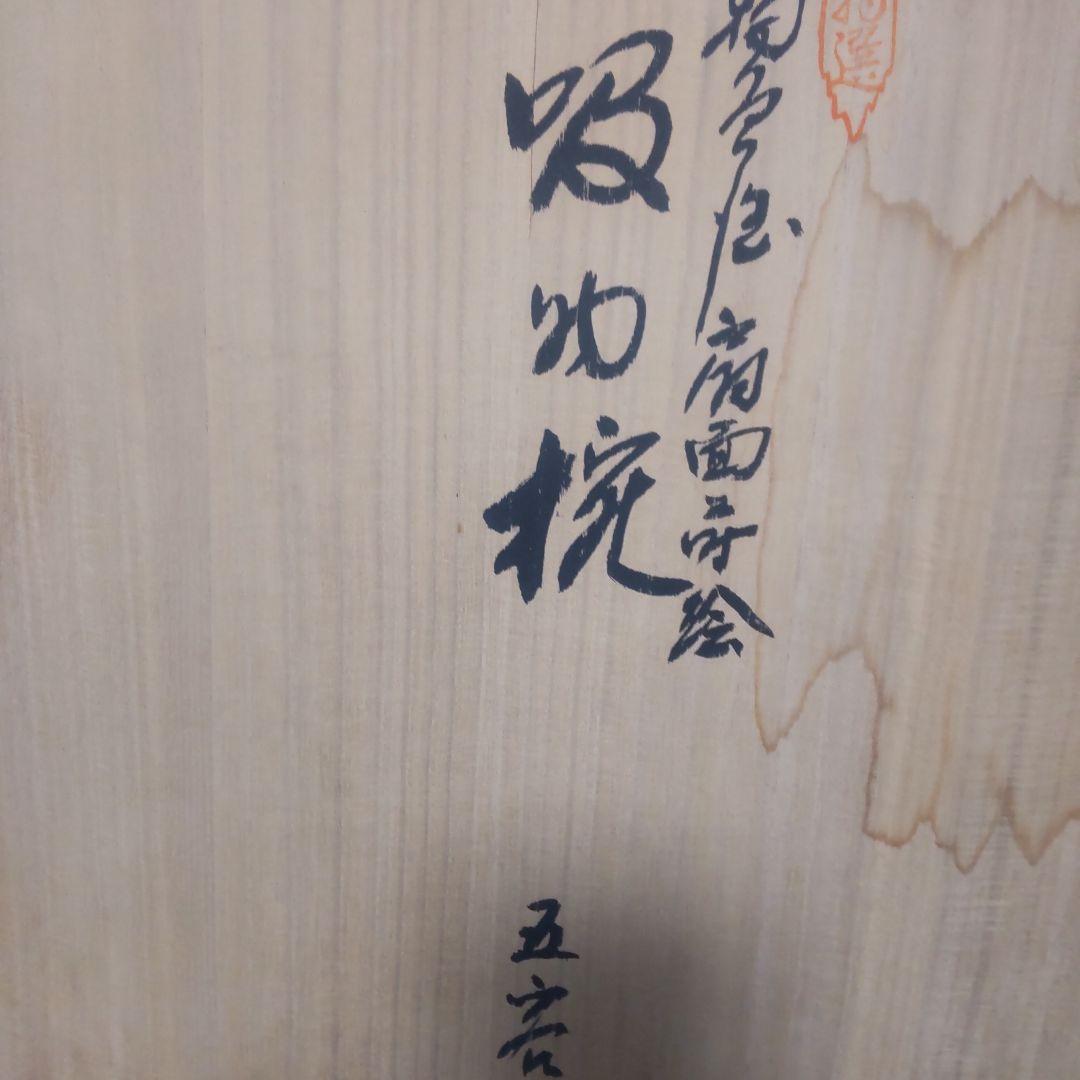 特選
扇面蒔絵
吸物椀
五客